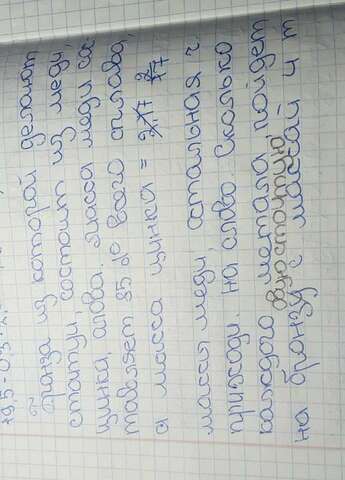 79,5-0,3-2,
бронза из которой делают
статуи, состоит из меди,
цинка, олова. Масса меди со-
тавляет 85 % всего сплава,
а масса цинка = 2/17
массы меди, остальная ч.
приходи. на олово. Сколько
каждого метала пойдет
на бронзовую статую,
с массой 4 т